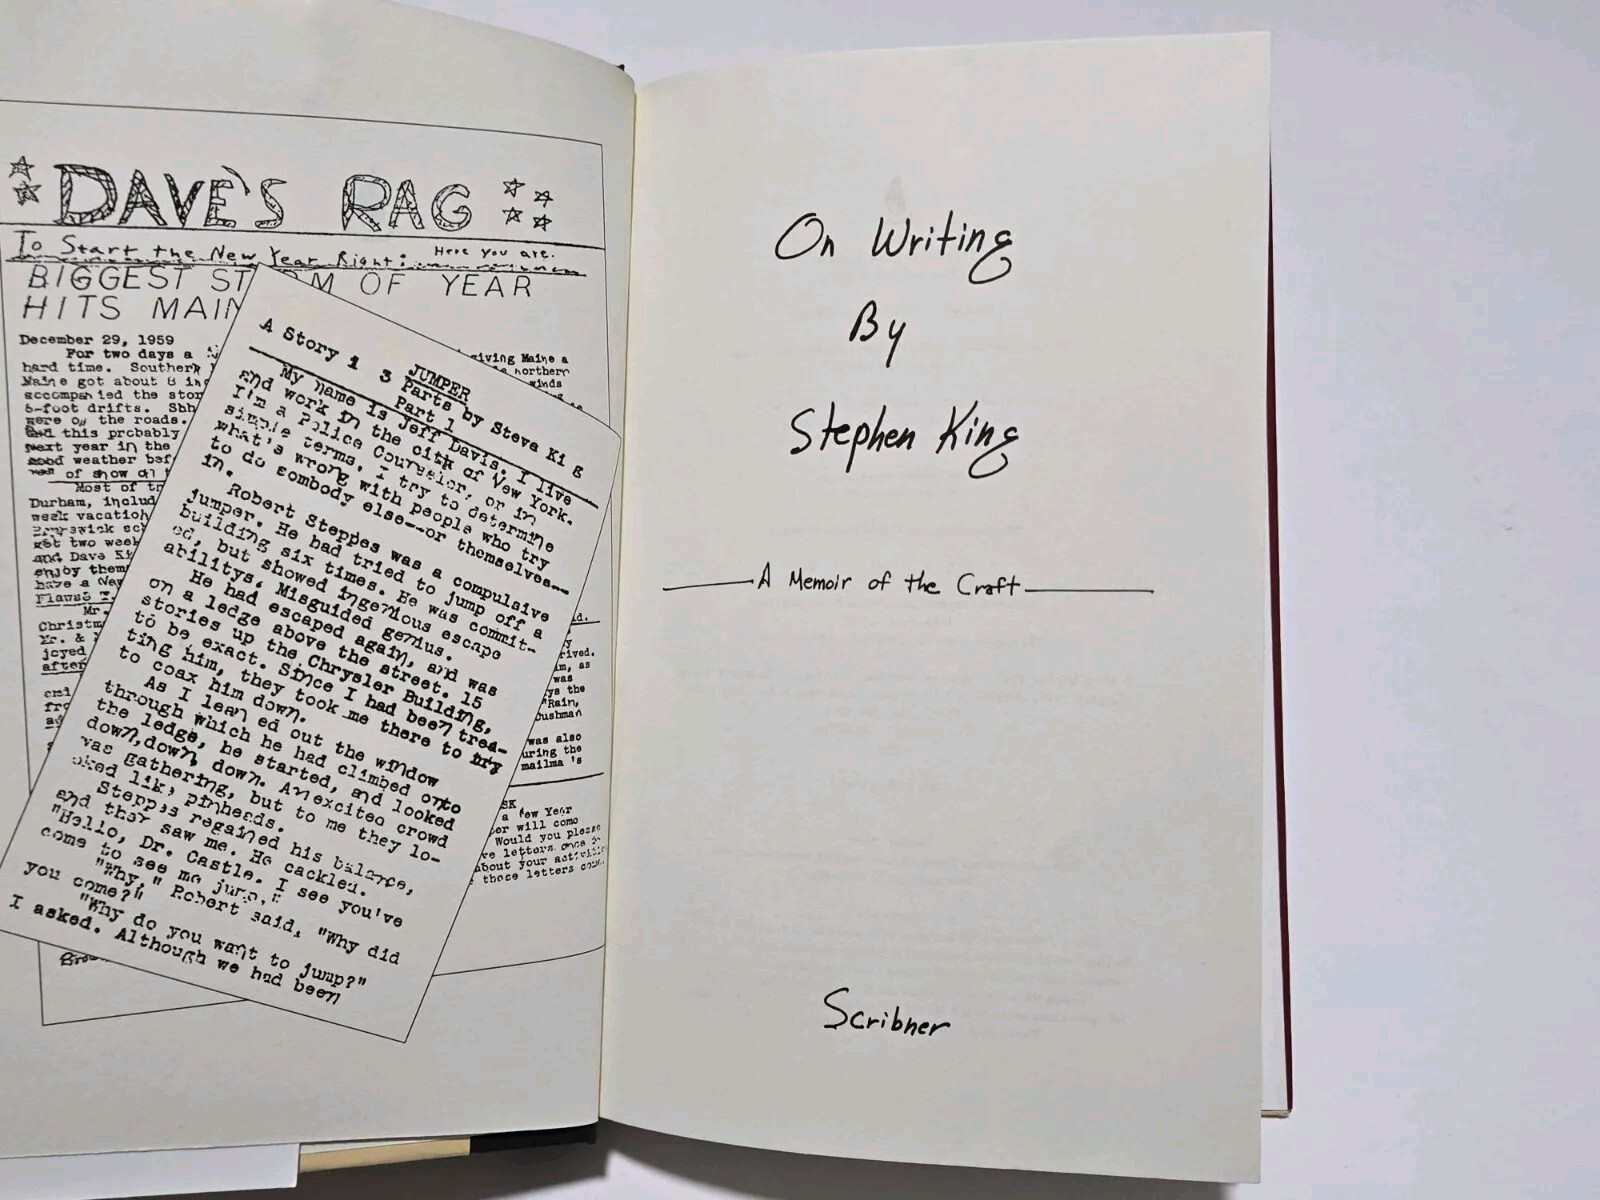 DAVE'S RAG
To Start the New Year Right: Here you are.
BIGGEST ST RM OF YEAR
HITS MAIN
December 29, 1959
For two days a
hard time. Southern
Maine got about 8 in
accompanied the stor
6-foot drifts.
were on the roads.
and this probably
next year in the
good weather bef
of snow
Most of
Durham, includ
week vacation
Brunswick sc
get two week
and Dave Ki
enjoy them
have a New
Mr.
Christm
joyed
after
A Story 1 3 Parts by Steve Ki g
JUMPER
Part 1
My name is Jeff Davis. I live
and work in the city of New York.
I'm a Police Counselor, or in
simple terms, I try to determine
what's wrong with people who try
to do sombody else--or themselves--
in.
Robert Steppes was a compulsive
jumper. He had tried to jump off a
building six times. He was commit-
ed, but showed ingenious escape
abilitys. Misguided genius.
He had escaped again, and was
on a ledge above the street. 15
stories up the Chrysler Building,
to be exact. Since I had been trea-
ting him, they took me there to try
to coax him down.
As I lean ed out the window
through which he had climbed onto
the ledge, he started, and looked
down, down, down. An excited crowd
was gathering, but to me they lo-
oked like pinheads.
Steppes regained his balance,
and then saw me. He cackled.
"Hello, Dr. Castle. I see you've
come to see me jump,"
"Why," Robert said, "Why did
you come?"
"Why do you want to jump?"
I asked. Although we had been
giving Maine a
northern
winds
rived.
as
was
ys the
"Rain,
Cushman
was also
uring the
mailma 's
SK
a few Year
er will come
Would you please
ve letters once
about your activi
those letters
On Writing
By
Stephen King
A Memoir of the Craft
Scribner